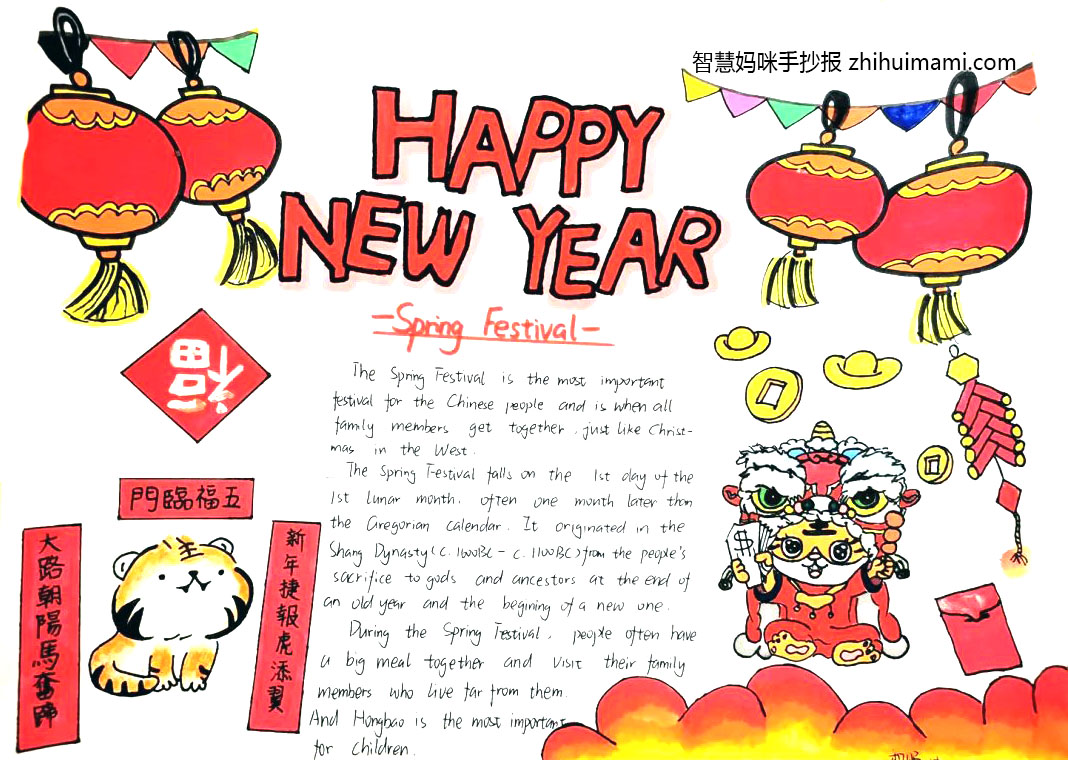 智慧妈咪手抄报 zhihuimami.com
HAPPY
NEW YEAR
-Spring Festival-
福
The Spring Festival is the most important
festival for the Chinese people and is when all
family members get together, just like Christ-
mas in the West.
The Spring Festival falls on the 1st day of the
1st lunar month, often one month later than
the Gregorian calendar. It originated in the
Shang Dynasty(c. 1600BC - c. 1100BC)from the people's
sacrifice to gods and ancestors at the end of
an old year and the begining of a new one.
During the Spring Festival, people often have
a big meal together and visit their family
members who live far from them.
And Hongbao is the most important
for children.
門臨福五
大路朝陽馬奮蹄
新年捷報虎添翼
$